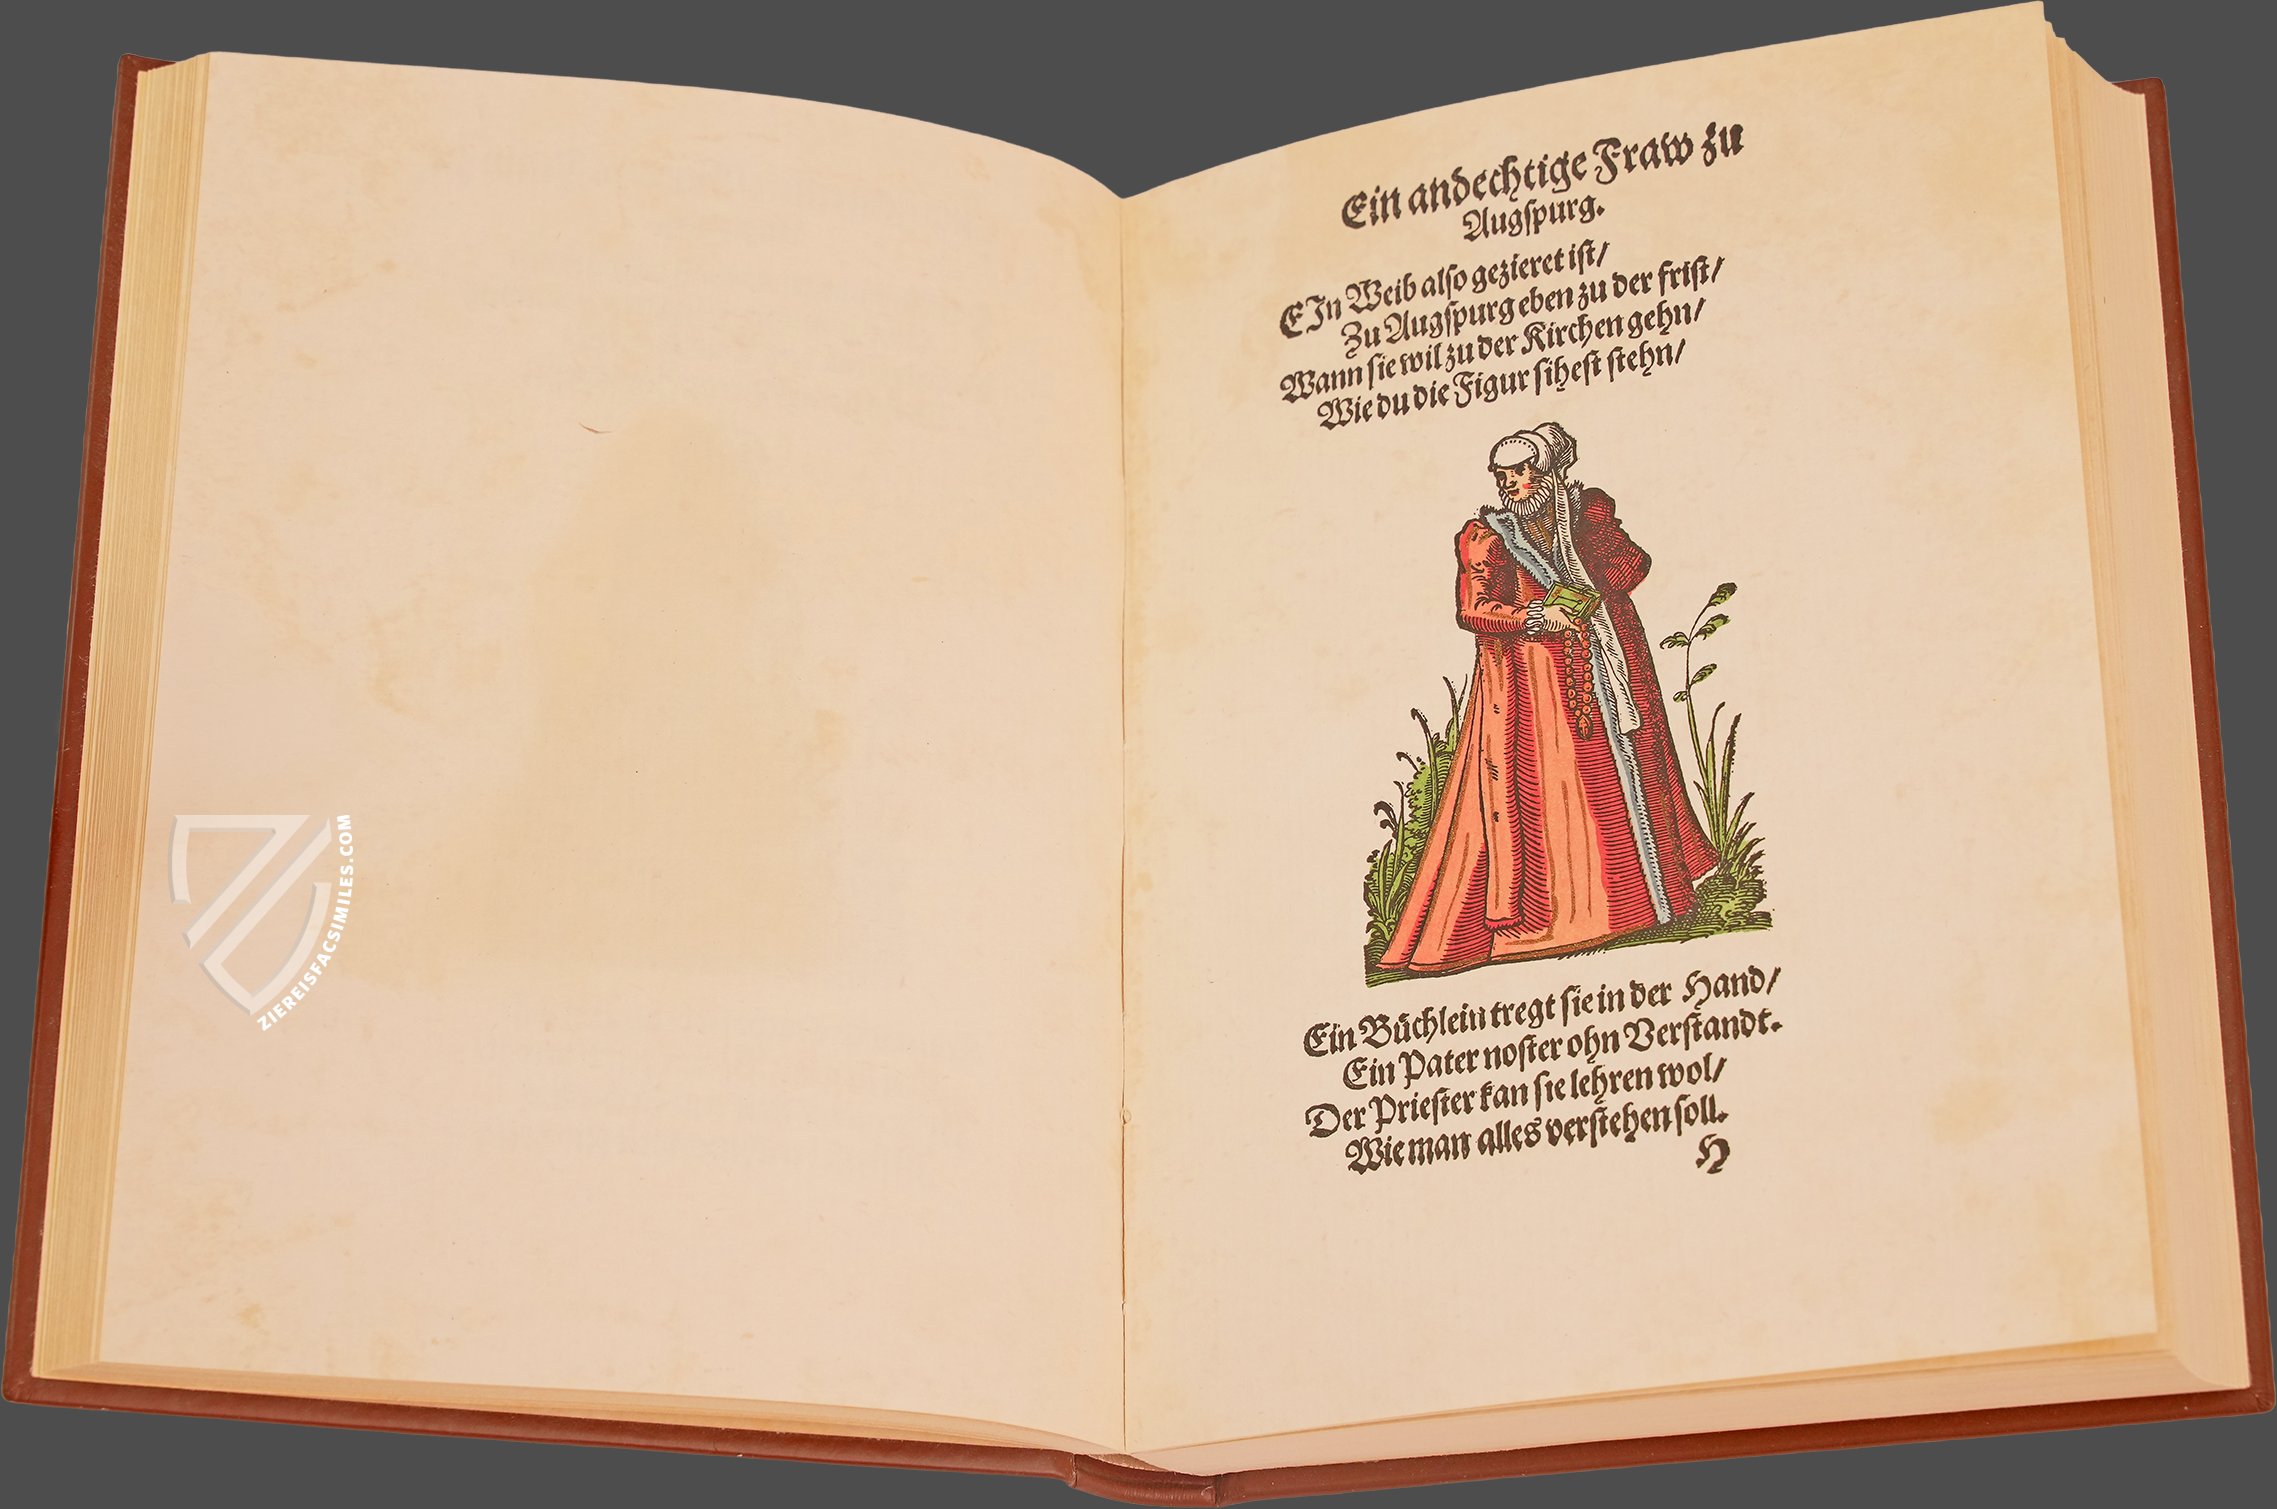 ZIEREISFACSIMILES.COM
Ein andechtige Fraw zu
Augſpurg.
EJn Weib alſo gezieret iſt/
Zu Augſpurg eben zu der friſt/
Wann ſie wil zu der Kirchen gehn/
Wie du die Figur ſiheſt ſtehn/
Ein Büchlein tregt ſie in der Hand/
Ein Pater noſter ohn Verſtandt.
Der Prieſter kan ſie lehren wol/
Wie man alles verſtehen ſoll.
H